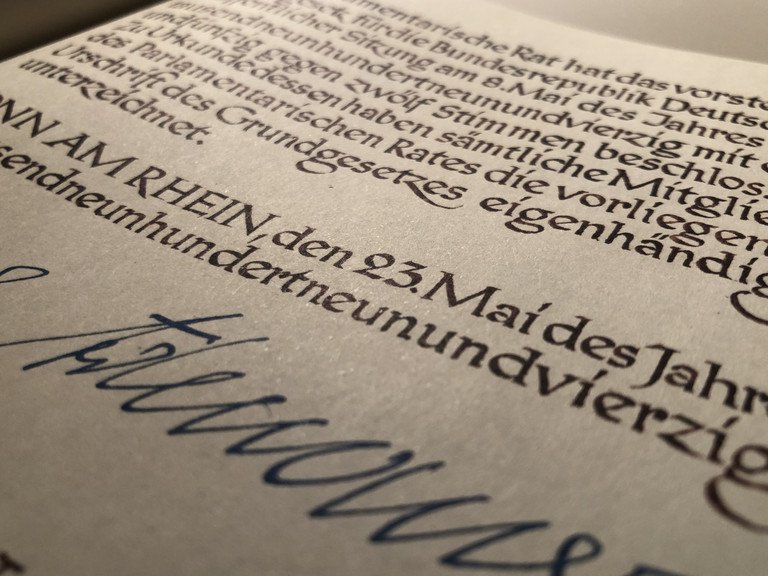 mentarische Rat hat das vorste
für die Bundesrepublik Deutsc
licher Sitzung am 8. Mai des Jahres
tausendneunhundertneunundvierzig mit
undfünfzig gegen zwölf Stimmen beschlos
zu Urkunde dessen haben sämtliche Mitglie
des Parlamentarischen Rates die vorliegen
Urschrift des Grundgesetzes eigenhändig
unterzeichnet.
ONN AM RHEIN, den 23. Mai des Jahre
sendneunhundertneunundvierzig